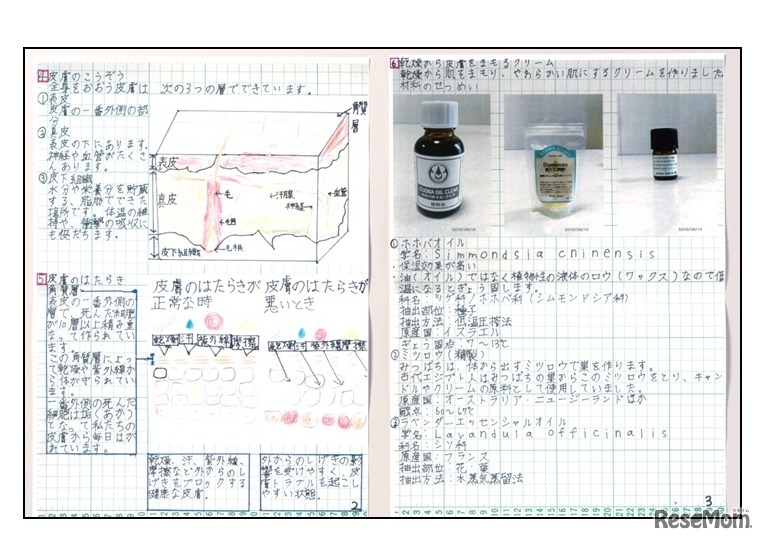 4 皮膚のこうぞう
全身をおおう皮膚は 次の3つの層でできています。
①表皮
皮膚の一番外側の部
分
②真皮
表皮の下にあります。
神経や血管がたくさ
んあります。
③皮下組織
水分や栄養分を貯蔵
する、脂肪でできた
場所です。体温の維
持や、衝撃の吸収に
も役だちます。
角質
層
表皮
真皮
皮下組織
毛
汗腺
神経
血管
毛根
5 皮膚のはたらき
角質層
表皮の一番外側の
層で、死んだ細胞
が10層以上積み重
なって作られてい
ます。
この角質層によっ
て乾燥や紫外線か
ら体が守られてい
ます。
一番外側の死んだ
細胞は垢(あか)
となって私たちの
皮膚から毎日はが
れています。
皮膚のはたらきが
正常な時
皮膚のはたらきが
悪いとき
乾燥 汗 紫外線 摩擦
乾燥 汗 紫外線 摩擦
乾燥、汗、紫外線、
摩擦など外からのし
げきをブロックする
健康な皮膚。
外からのしげきの影
響を受けやすく、皮
膚トラブルを起こし
やすい状態。
2
6 乾燥から皮膚をまもるクリーム
乾燥から肌をまもり、やわらかい肌にするクリームを作りました
材料のせつめい
JOJOBA OIL CLEAR
Beeswax
①ホホバオイル
学名:Simmondsia cninensis
保湿効果が高い
油(オイル)ではなく植物性の液体のロウ(ワックス)なので低
温になるとぎょう固します。
科名:ツゲ科/ホホバ科(シムモンドシア科)
抽出部位:種子
抽出方法:低温圧搾法
原産国:イスラエル
ぎょう固点:7〜13℃
②ミツロウ(精製)
みつばちは、体から出すミツロウで巣を作ります。
古代エジプト人はみつばちの巣からこのミツロウをとり、キャン
ドルやクリームの原料として使用していました。
原産国:オーストラリア・ニュージーランドほか
融点:60〜67℃
③ラベンダーエッセンシャルオイル
学名:Lavandula officinalis
科名:シソ科
原産国:フランス
抽出部位:花・葉
抽出方法:水蒸気蒸留法
3
ReseMom.